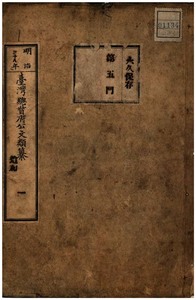 永久保存
第五門
明治
年
臺灣總督府公文類纂
追加
一